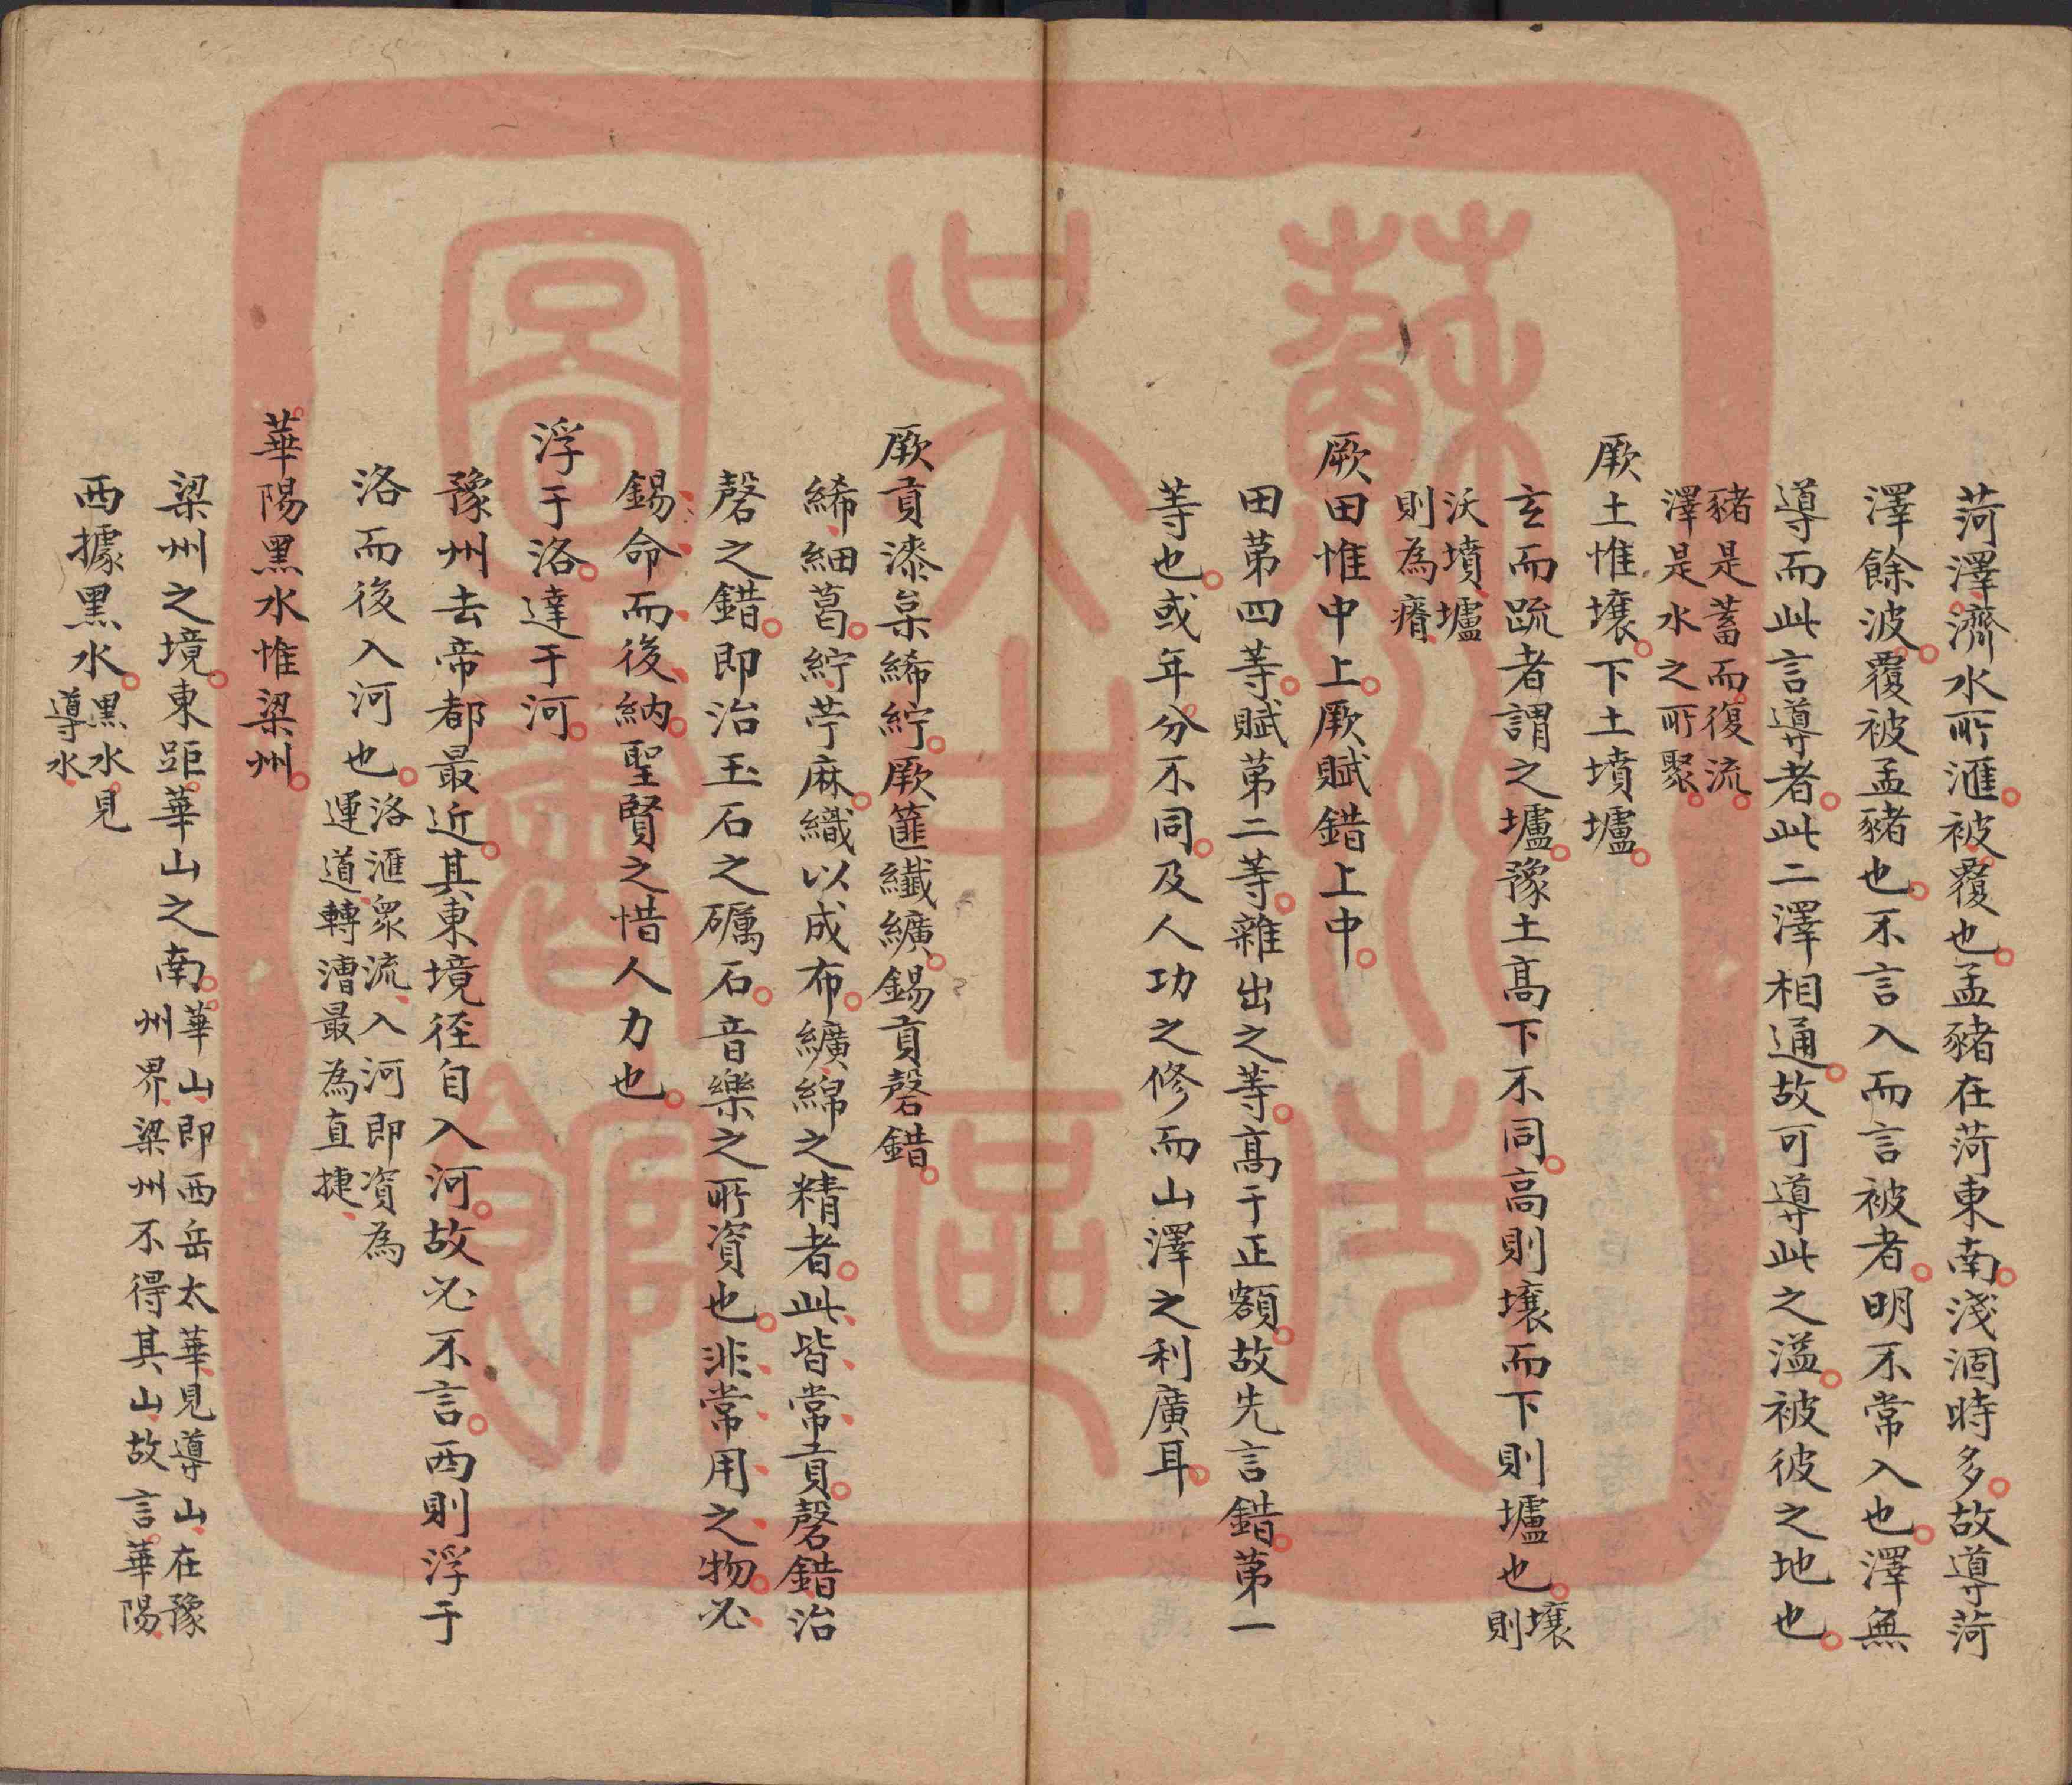 菏澤濟水所滙被覆也孟豬在菏東南淺涸時多故導菏
澤餘波覆被孟豬也不言入而言被者明不常入也澤無
導而此言導者此二澤相通故可導此之溢被彼之地也
豬是蓄而復流
澤是水之所聚
厥土惟壤下土墳壚
玄而疏者謂之壚豫土高下不同高則壤而下則壚也壤則
沃墳壚
則為瘠
厥田惟中上厥賦錯上中
田第四等賦第二等雜出之等高于正額故先言錯第一
等也或年分不同及人功之修而山澤之利廣耳
厥貢漆枲絺紵厥篚纖纊錫貢磬錯
絺細葛紵苧麻織以成布纊綿之精者此皆常貢磬錯治
磬之錯即治玉石之礪石音樂之所資也非常用之物必
錫命而後納聖賢之惜人力也
浮于洛達于河
豫州去帝都最近其東境徑自入河故必不言西則浮于
洛而後入河也洛滙眾流入河即資為
運道轉漕最為直捷
華陽黑水惟梁州
梁州之境東距華山之南華山即西岳太華見導山在豫
州界梁州不得其山故言華陽
西據黑水黑水見
導水
蘇州
市
吳中
區
圖書
館